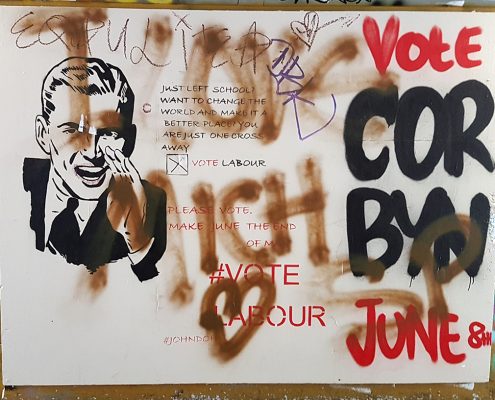 JUST LEFT SCHOOL?
WANT TO CHANGE THE
WORLD AND MAKE IT A
BETTER PLACE? YOU
ARE JUST ONE CROSS
AWAY
VOTE LABOUR
PLEASE VOTE.
MAKE JUNE THE END
OF M
#VOTE
LABOUR
#JOHNDO
VOTE
COR
BYN
JUNE 8TH